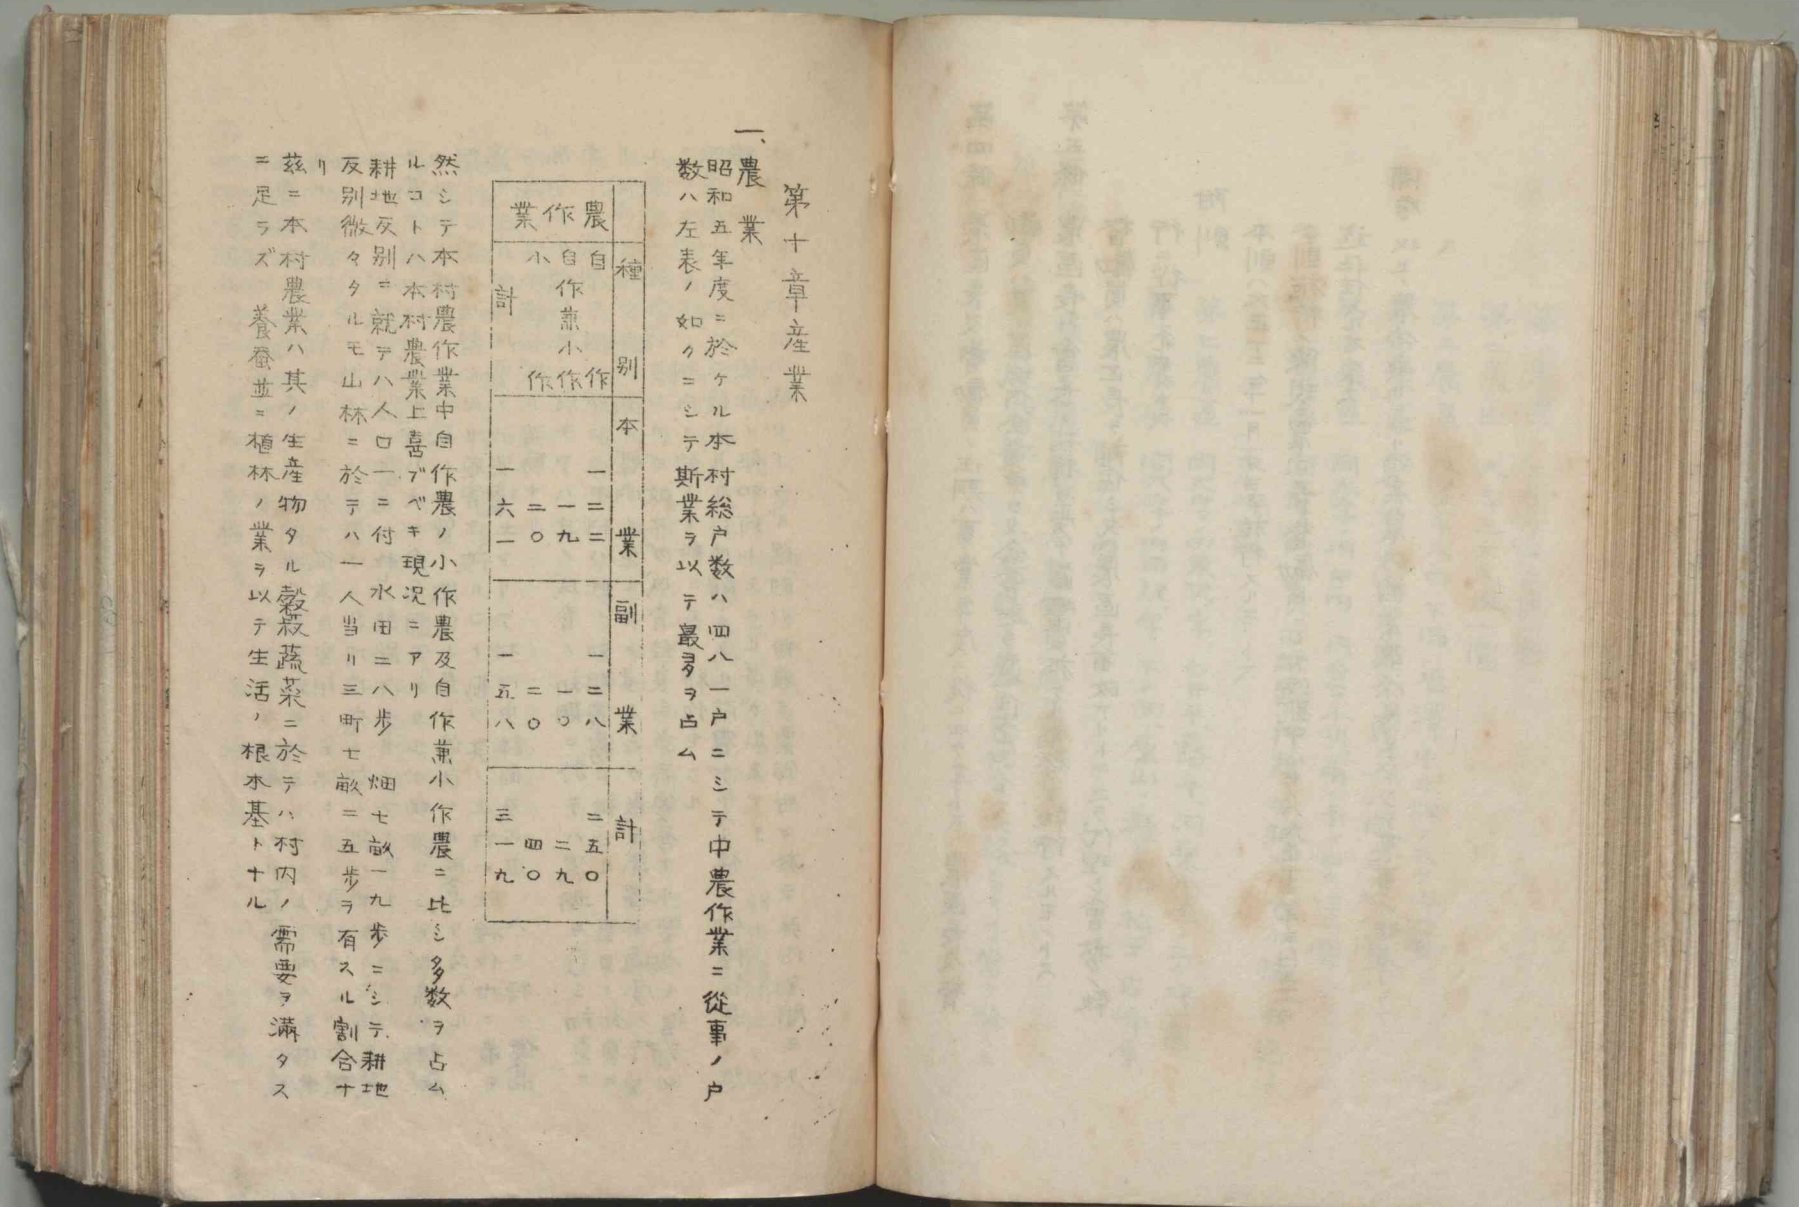 第十章産業
一、農業
昭和五年度ニ於ケル本村総户数ハ四八一户ニシテ中農作業ニ従事ノ户
数ハ左表ノ如クニシテ斯業ヲ以テ最多ヲ占ム
種別 本業 副業 計
農作業
自作 一二二 一二八 二五〇
自作兼小作 一九 一〇 二九
小作 二〇 二〇 四〇
計 一六一 一五八 三一九
然シテ本村農作業中自作農ノ小作農及自作兼小作農ニ比シ多数ヲ占ム
ルコトハ本村農業上喜ブベキ現況ニアリ
耕地反別ニ就テハ人口一ニ付水田二八歩 畑七畝一九歩ニシテ耕地
反別微々タルモ山林ニ於テハ一人当リ三町七畝二五歩ヲ有スル割合ナ
リ
茲ニ本村農業ハ其ノ生産物タル穀菽蔬菜ニ於テハ村内ノ需要ヲ満タス
ニ足ラズ 養蚕並ニ植林ノ業ヲ以テ生活ノ根本基トナル